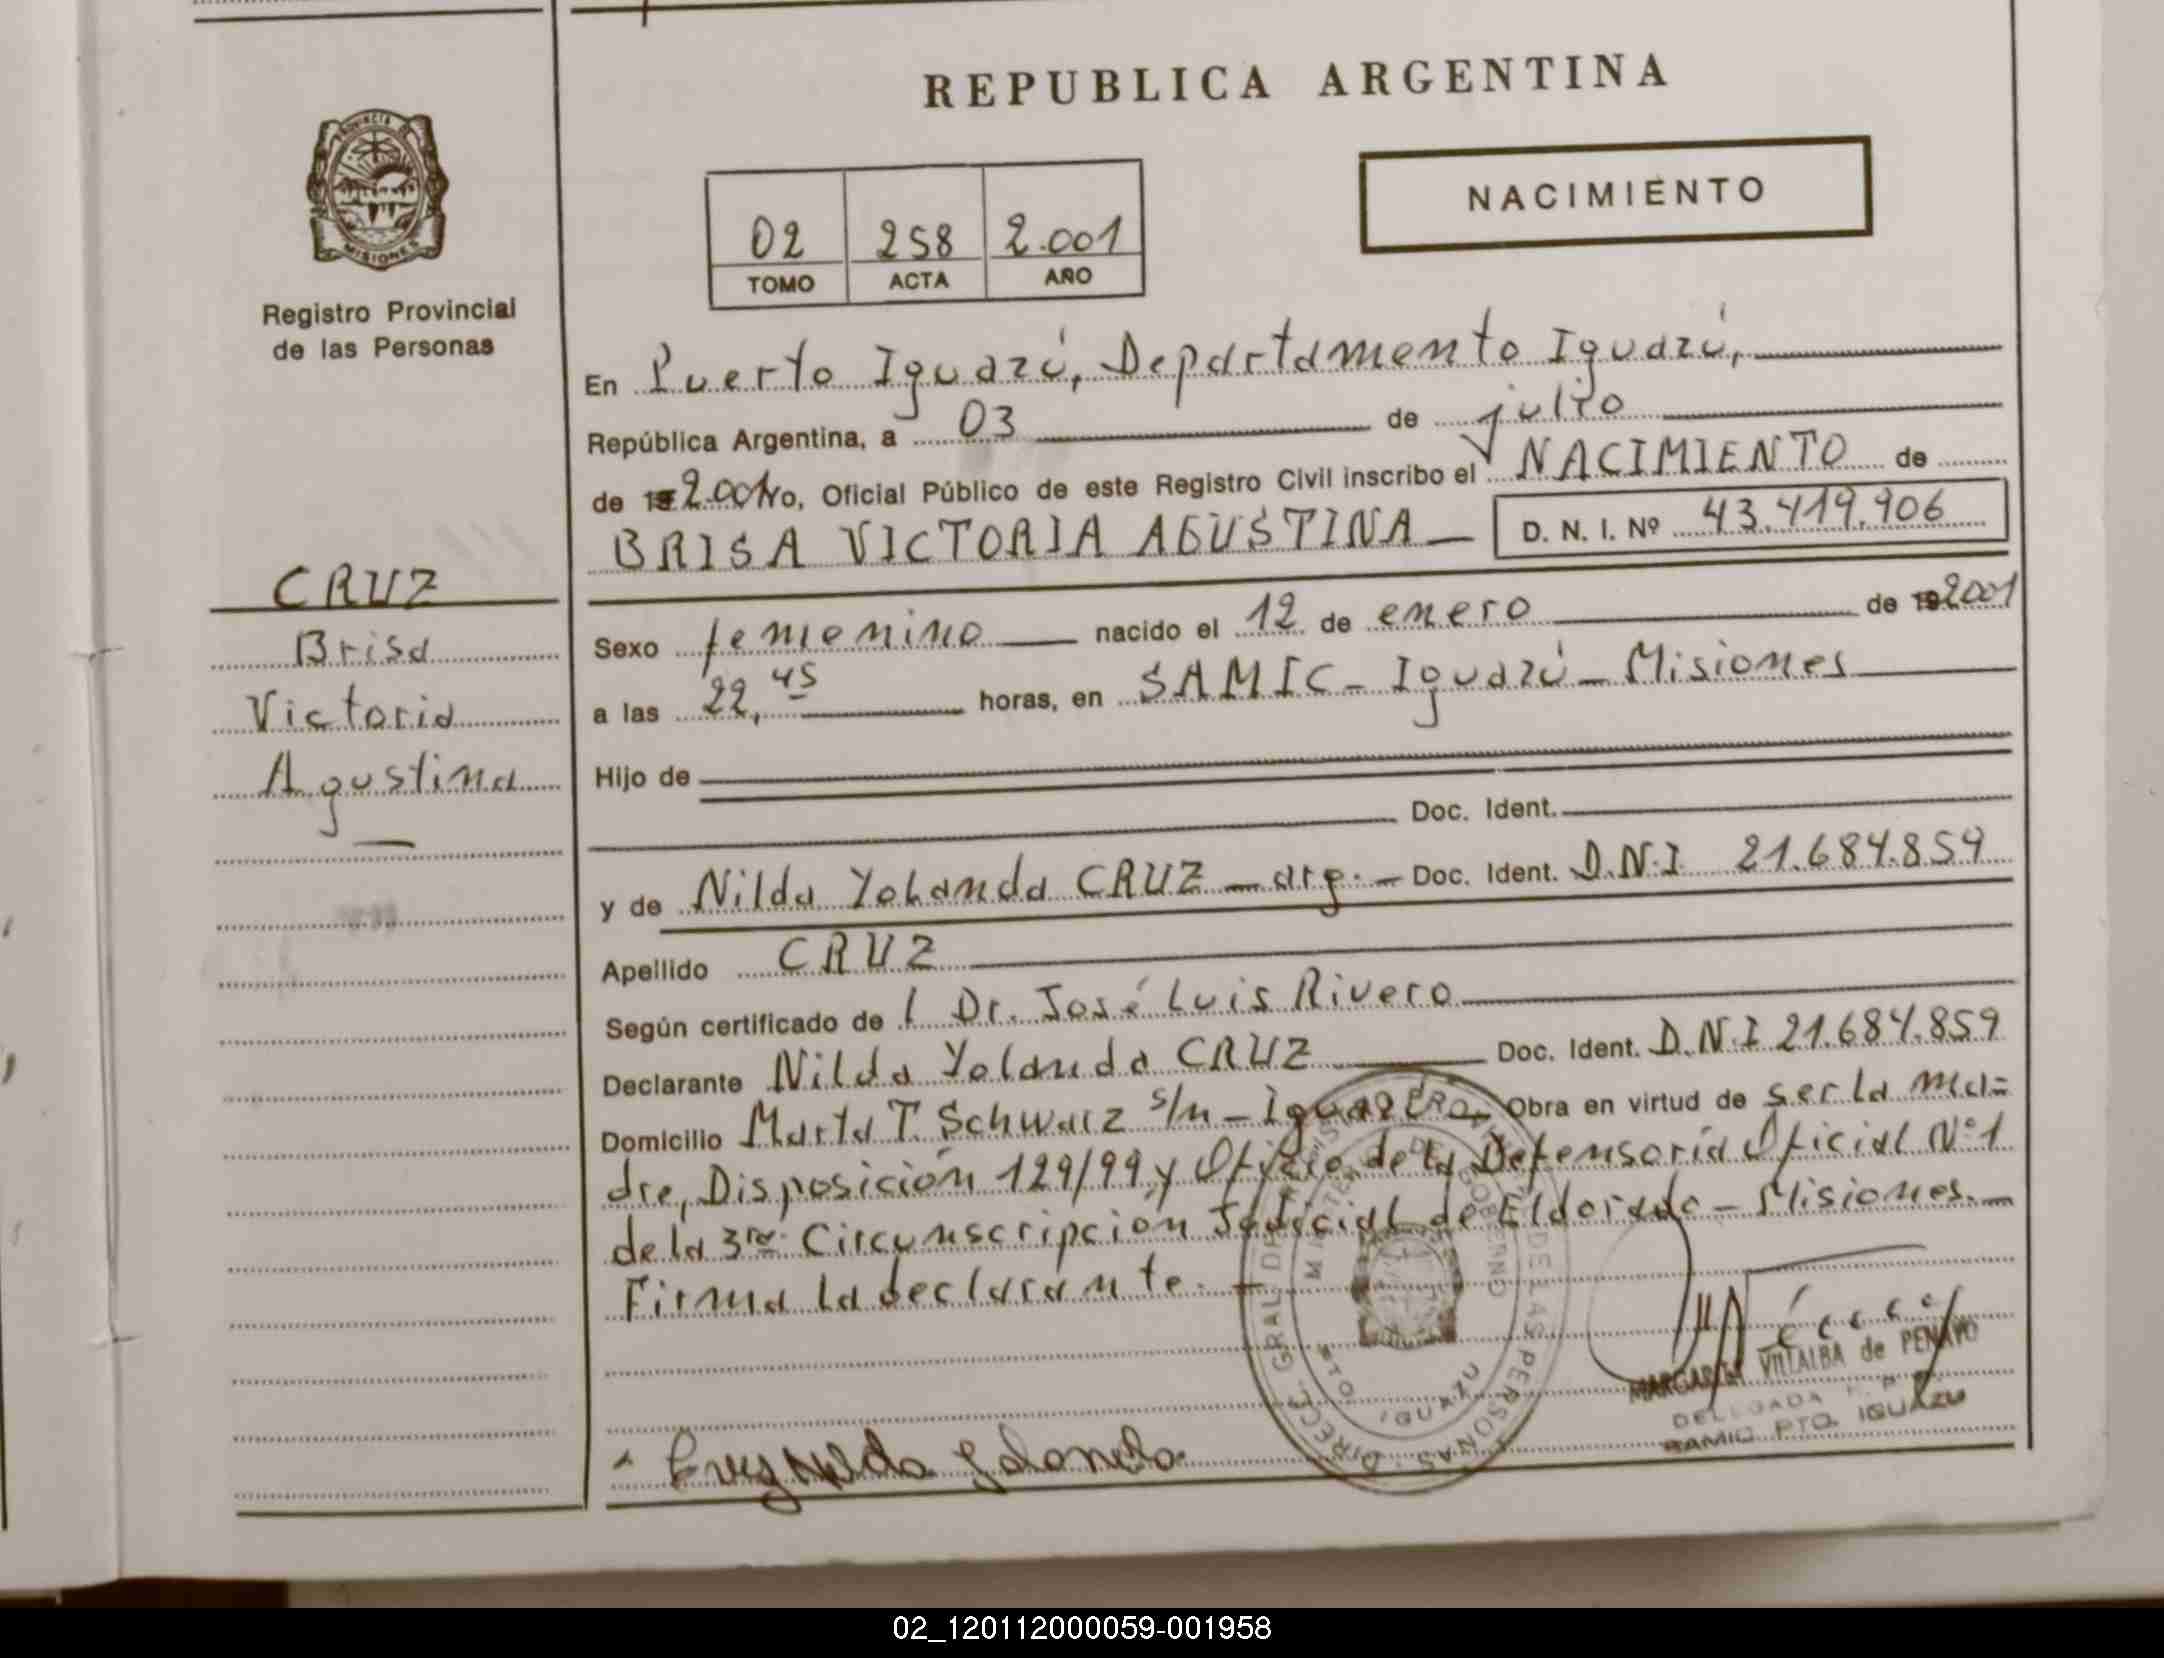 REPUBLICA ARGENTINA
PROVINCIA DE
MISIONES
Registro Provincial
de las Personas
NACIMIENTO
02 258 2.001
TOMO ACTA AÑO
En Puerto Iguazú, Departamento Iguazú,
República Argentina, a 03 de julio
de 19 2.001 yo, Oficial Público de este Registro Civil inscribo el NACIMIENTO de
BRISA VICTORIA AGUSTINA D. N. I. Nº 43.419.906
CRUZ
Brisa
Victoria
Agustina
Sexo femenino nacido el 12 de enero de 19 2001
a las 22,45 horas, en SAMIC - Iguazú - Misiones
Hijo de
Doc. Ident.
y de Nilda Yolanda CRUZ - arg. - Doc. Ident. D.N.I 21.684.859
Apellido CRUZ
Según certificado de l Dr. José Luis Rivero
Declarante Nilda Yolanda CRUZ Doc. Ident. D.N.I 21.684.859
Domicilio Marta T. Schwarz s/n - Iguazú Obra en virtud de ser la ma=
dre, Disposición 129/99 y Oficio de la Defensoría Oficial Nº1
de la 3ra. Circunscripción Judicial de Eldorado - Misiones. -
Firma la declarante. -
MINISTERIO DE GOBIERNO
DE LAS PERSONAS
DIRECC. GRAL DEL
PTO. IGUAZU
MARGARITA VILLALBA de PENAYO
DELEGADA
SAMIC PTO. IGUAZU
Cruz Nilda Yolanda
02_120112000059-001958